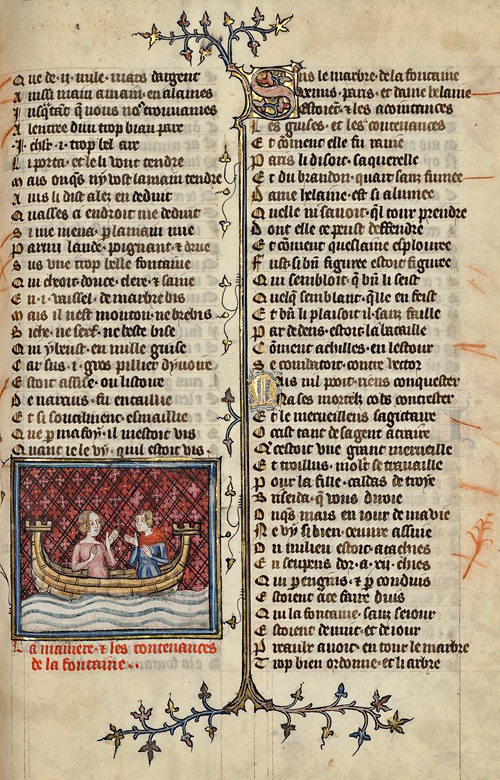 Que de .ii. mile mars dargent
Aussi main auiaus en alaines
Jusquant que nous nos trouuames
A lentree dun trop biau parc
.I. chier .i. trop bel arc
Li porta et le li vont tendre
Mais onques ny vost la main tendre
Ains li dist alez en deduit
Quasses a endroit me deduit
Si me mena par la main nue
Parmi lande poignant et drue
Sus vne trop belle fontaine
Qui droit douce clere et saine
En .i. vaissel de marbre bis
Mais il nest mouton ne brebis
Biche ne serf ne beste bise
Qui ybeust en nulle guise
Car sus .i. gros pillier dyuoire
Estoit assise ou listoire
De narcus fu entaillie
Et si soutilment esmaillie
Que par ma foy il mestoit vis
Quant ie le vy quil estoit vis
La maniere et les contenances
de la fontaine
Sus le marbre de la fontaine
Venus paris et dame helaine
Estoient et les acointances
Les guises et les contenances
Et coment elle fu rauie
Paris li disoit sa querelle
Et du brandon quart sanz fumee
Dame helaine est si alumee
Quelle ni sauoit quel tour prendre
Dont elle se puist deffendre
Et coment queslaine esplouree
Fust si bien figuree estoit figure
Qui sembloit que bien li seist
Quelque semblant quelle en feist
Et bien li plaisoit il sanz faille
Par dedens estoit la bataille
Coment achilles en lestour
Se combatoit contre hector
Mais nul pooit riens conquester
Na ses mortelz cols contrester
Et le merueilleus sagitaire
Ocist tant de sagent a traire
Questoit vne grant merueille
Et troillus molt se trauaille
Pour la fille calcas de troye
Briseida que vous diroie
Onques mais en iour de ma vie
Ne vy si bien oeuure assiue
En milieu estoit atachies
En serpens dor a .xii. chies
Qui par engins et par conduis
Estoient a ce faire duis
Qui la fontaine sanz seiour
Estoient de nuit et de iour
Preaulx auoit en tout le marbre
Trop bien ordonne et li arbre